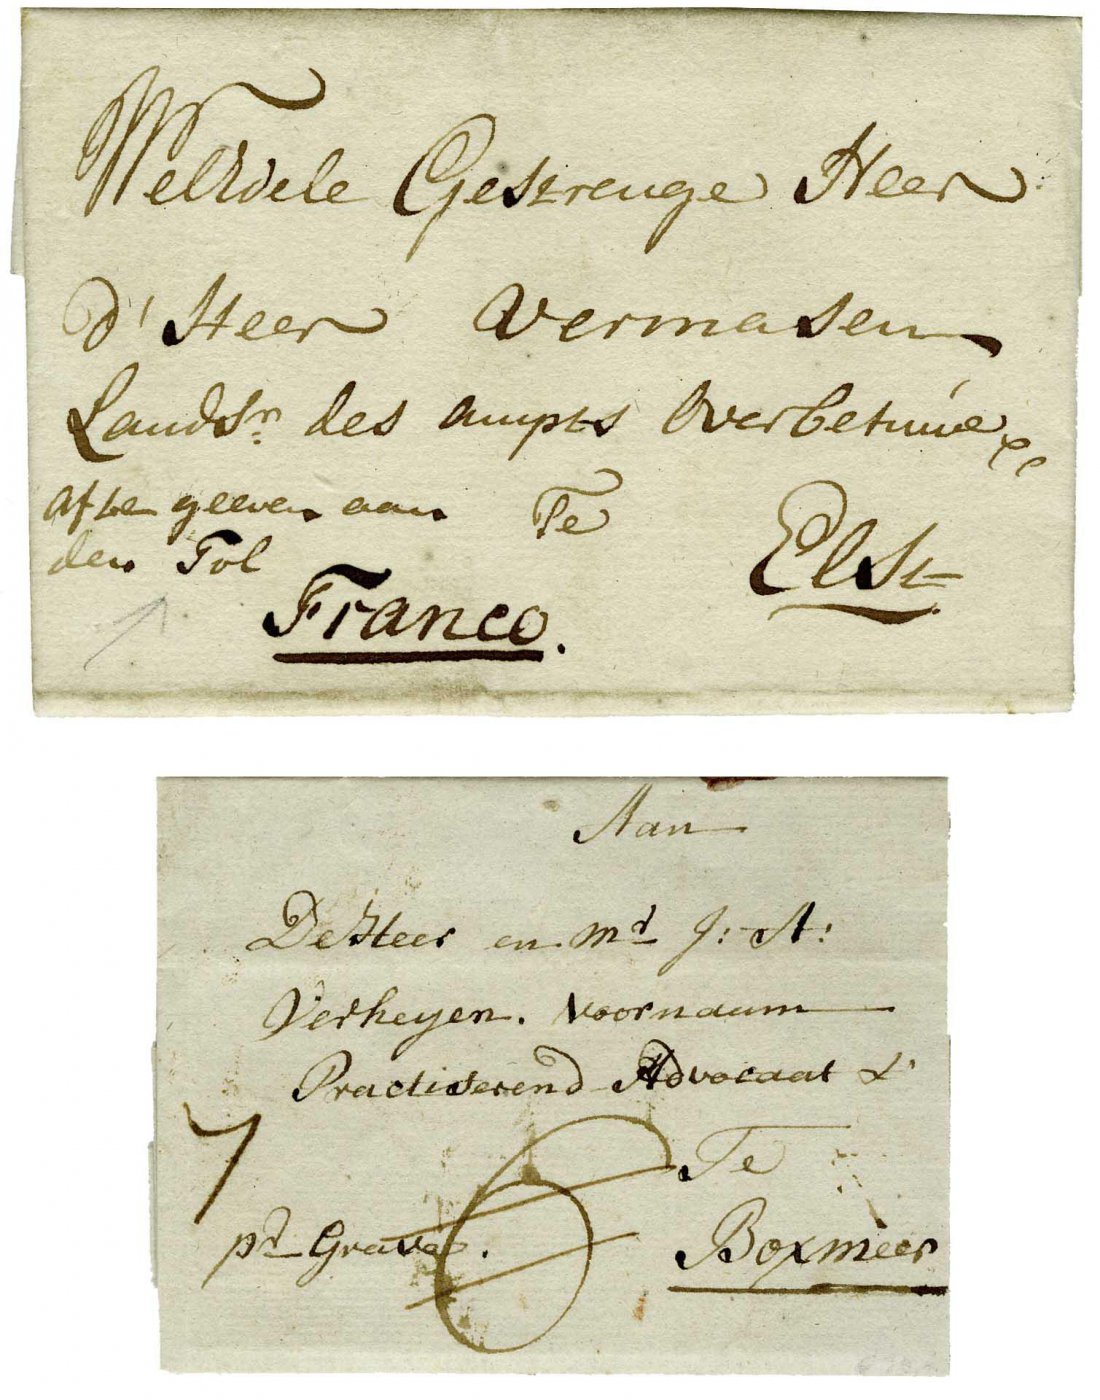 WelEdele Gestrenge Heer
d' Heer Vermasen
Landsr. des ampts Overbetuwe
afte geeven aan
den Tol
Te
Elst
Franco.
Aan
De Heer en mr J: A:
Verheyen. voornaam
Practiserend Advocaat &
7
Te
pr Grave. 6
Boxmeer